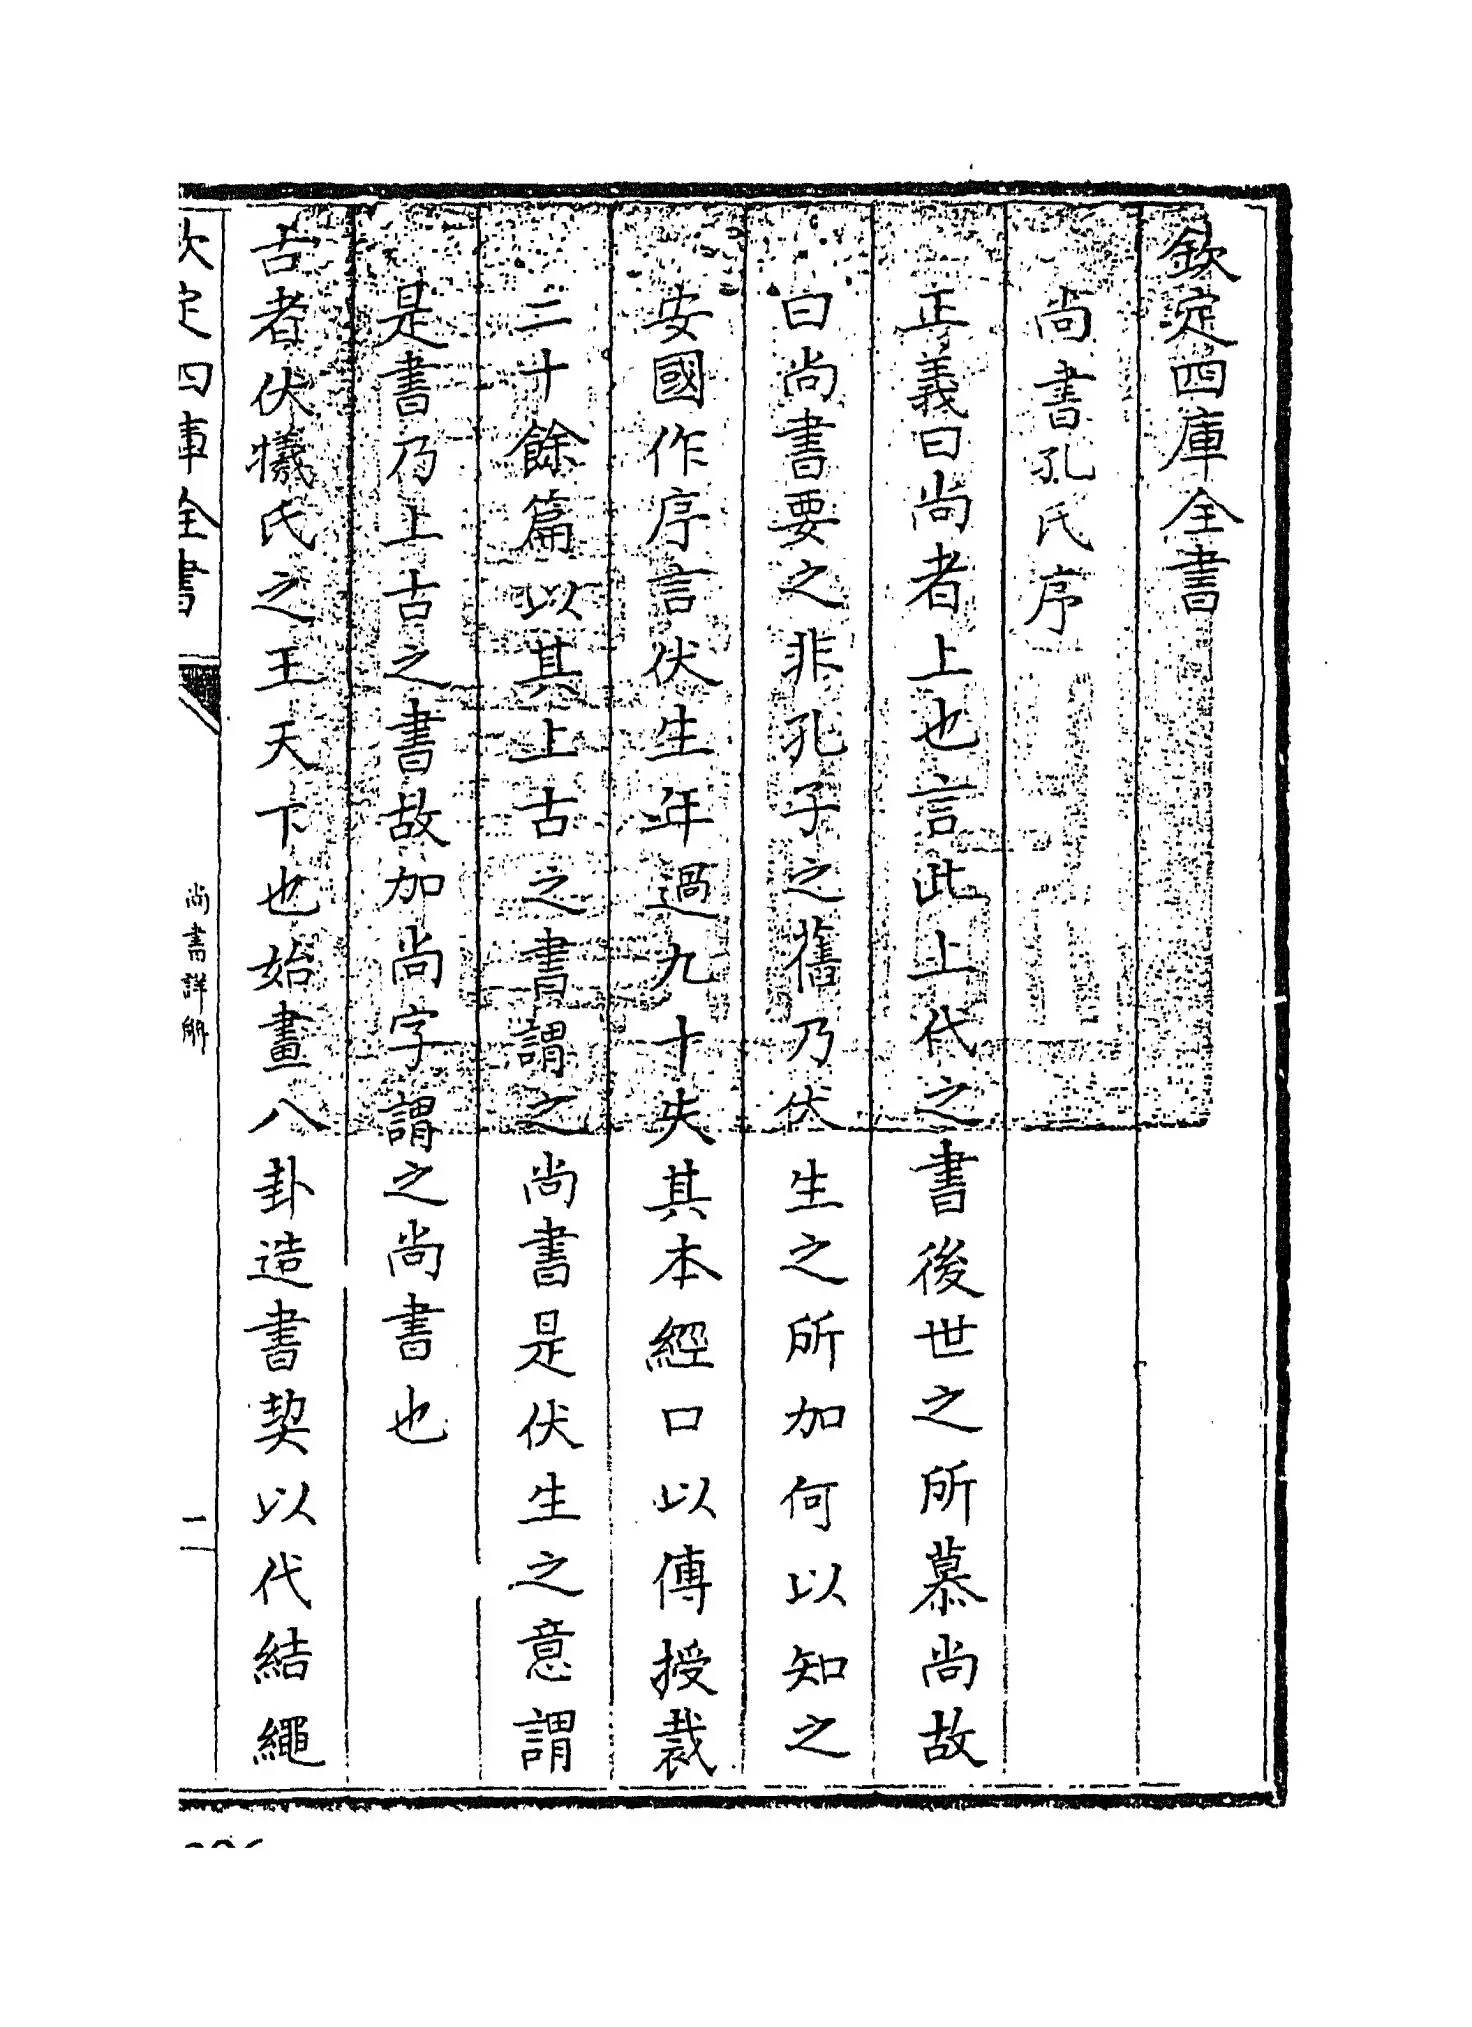 欽定四庫全書
尚書孔氏序
正義曰尚者上也言此上代之書後世之所慕尚故
曰尚書要之非孔子之舊乃伏生之所加何以知之
安國作序言伏生年過九十失其本經口以傳授裁
二十餘篇以其上古之書謂之尚書是伏生之意謂
是書乃上古之書故加尚字謂之尚書也
古者伏犧氏之王天下也始畫八卦造書契以代結繩
欽定四庫全書
尚書詳解
二